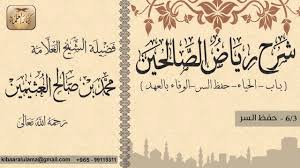 شرح رياض الصالحين
(باب - الحياء - حفظ السر - الوفاء بالعهد)
فضيلة الشيخ العلامة
محمد بن صالح العثيمين
رحمه الله تعالى
6/3 - حفظ السر
kibaarulama@gmail.com
+965 - 99119311